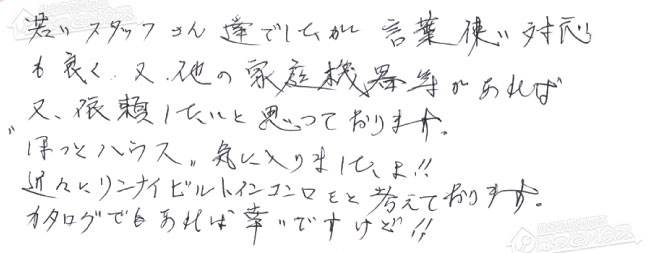 若いスタッフさん達でしたが 言葉使い対応
も良く、又、他の家庭機器等があれば
又、依頼したいと思っております。
"ほっとハウス"気に入りましたよ!!
近々にリンナイビルトインコンロをと考えております。
カタログでもあれば幸いですけど!!